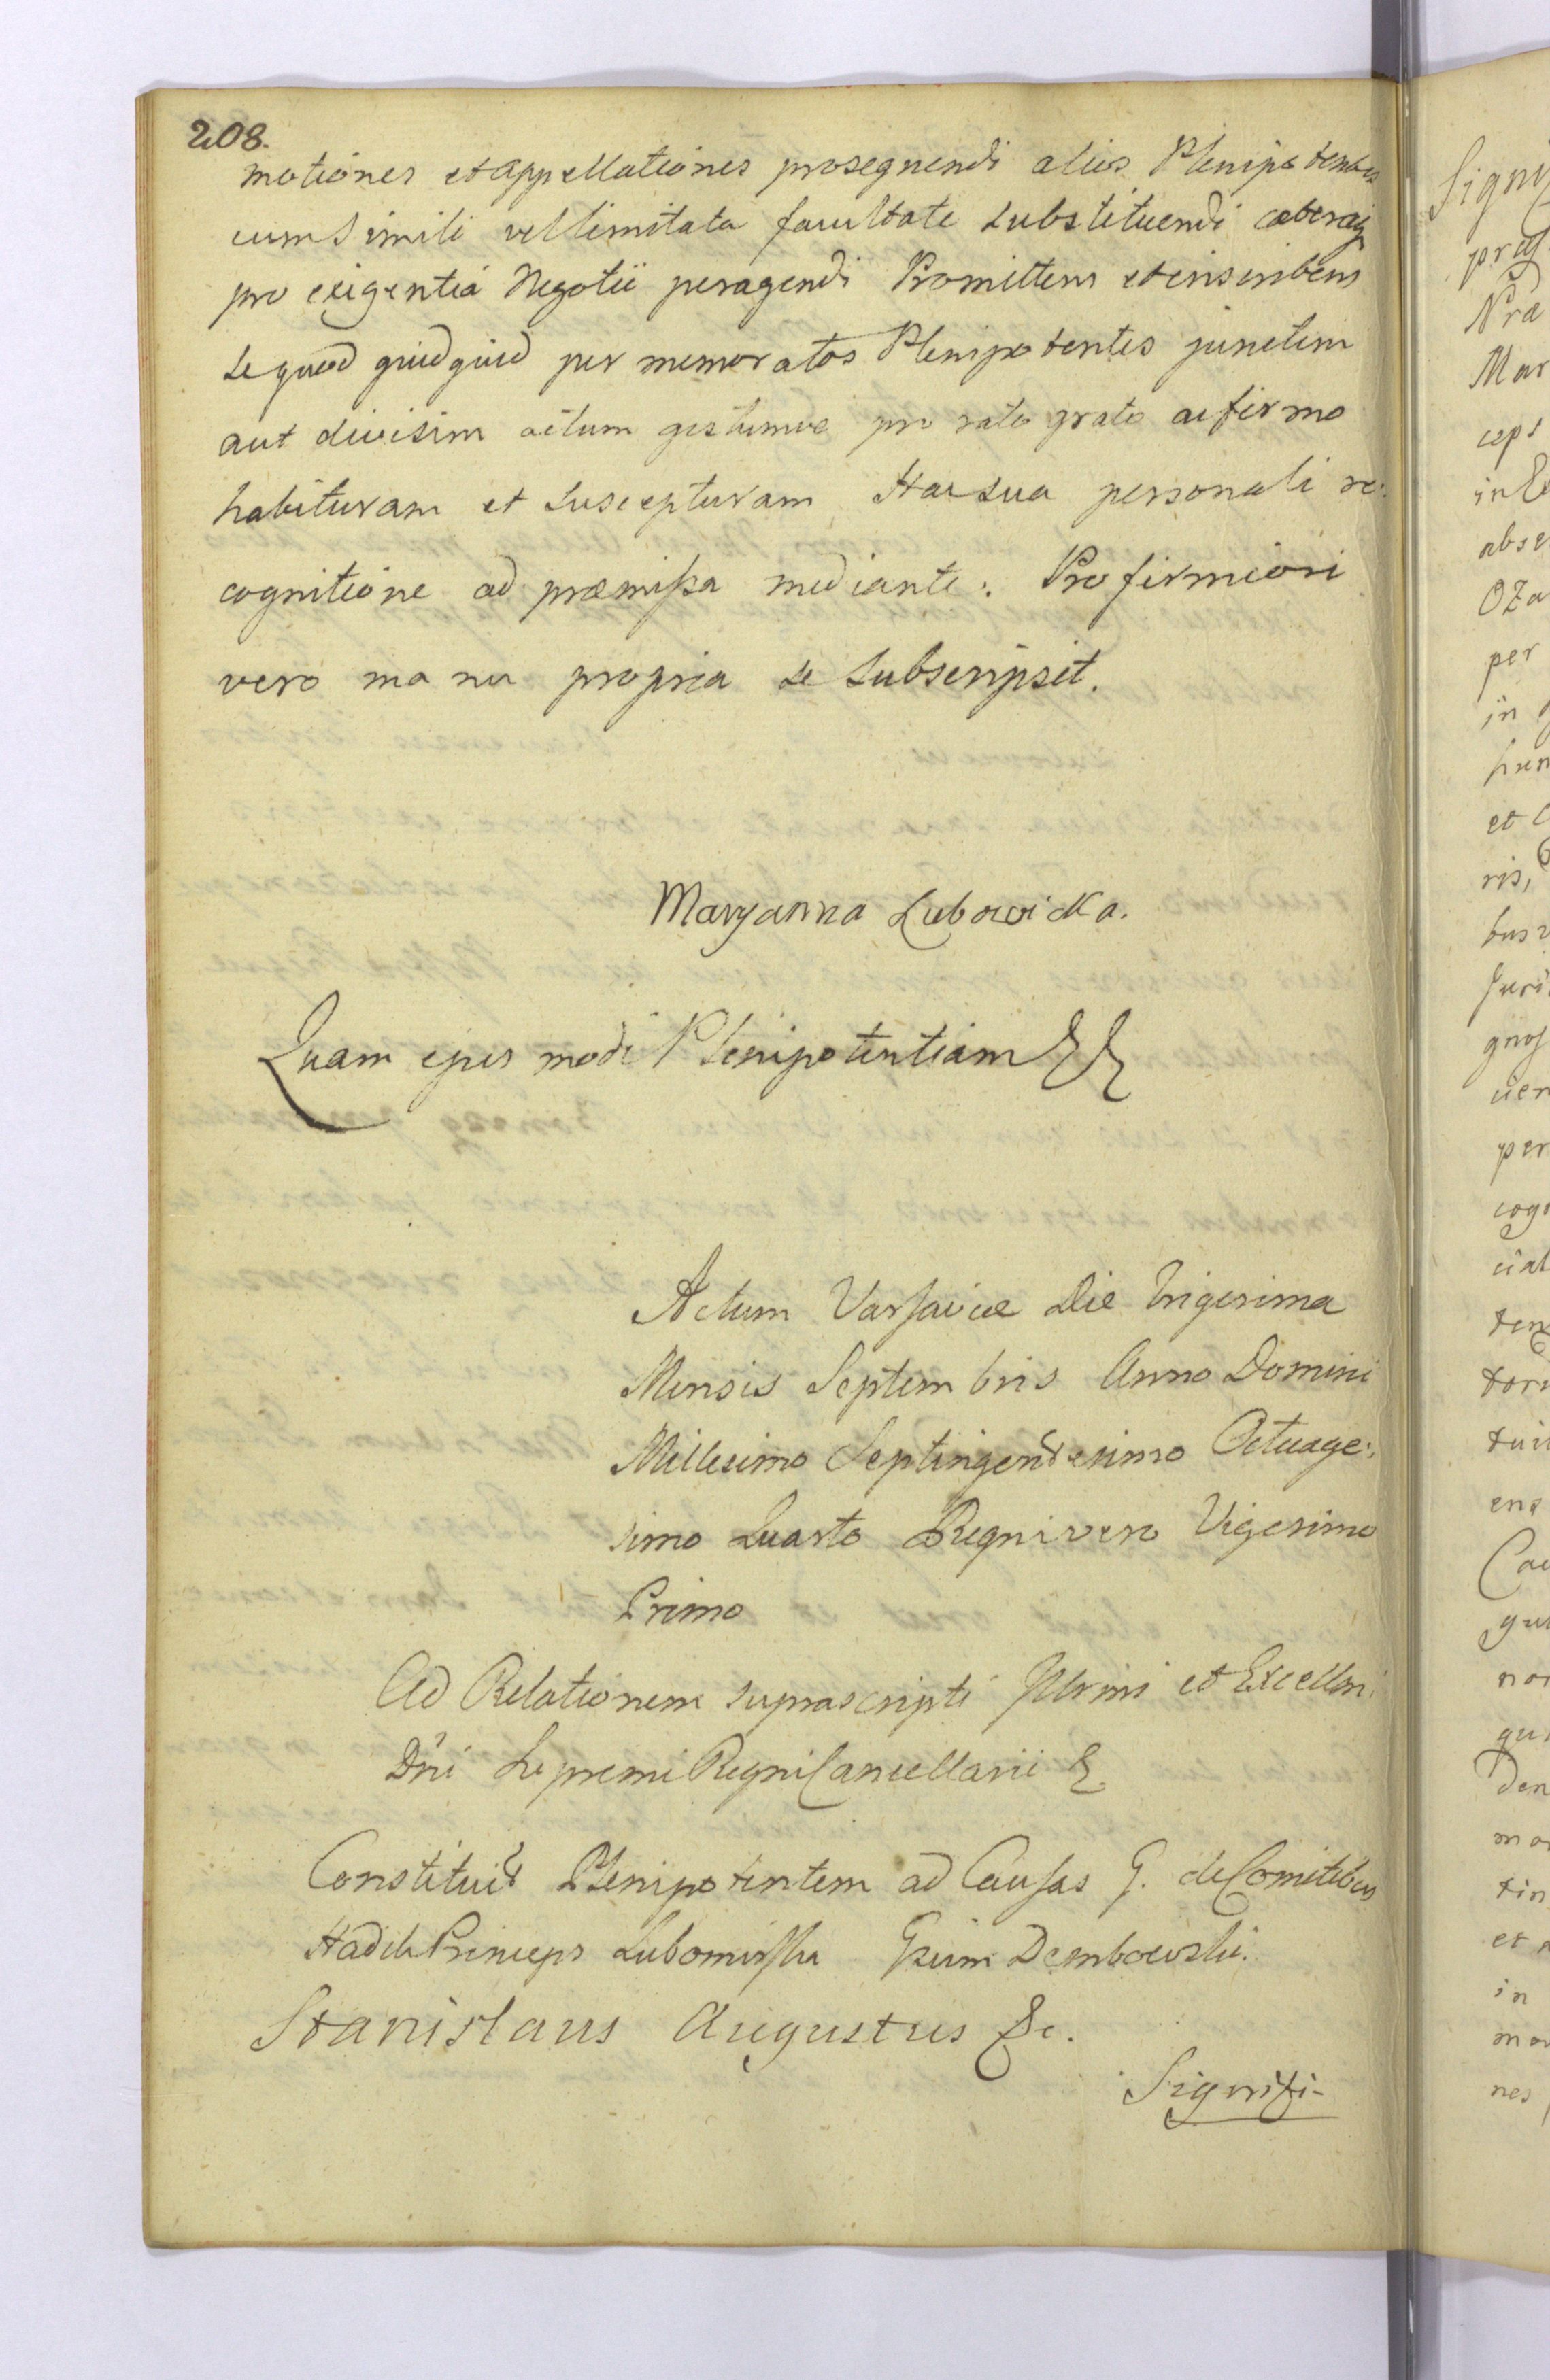 208.
motiones et appellationes prosequendi alios Plenipotentes
cum simili vel limitata facultate substituendi caeteraq
pro exigentia Negotii peragendi Promittens et inscribens
se quod quidquid per memoratos Plenipotentes junctim
aut divisim actum gestumve pro rato grato ac firmo
habituram et suscepturam Hac sua personali re:
cognitione ad præmissa mediante. Pro firmiori
vero manu propria se subscripsit.
Maryanna Lubowicka.
Quam ejus modi Plenipotentiam &&
Actum Varsaviæ Die Trigesima
Mensis Septembris Anno Domini
Millesimo Septingentesimo Octuage:
simo Quarto Regni vero Vigesimo
Primo
Ad Relationem suprascripti Illrmi et Excellmi
Dni Supremi Regni Cancellarii &
Constituit Plenipotentem ad Causas G. de Comitibus
Hadik Princeps Lubomirska Gsum Dembowski.
Stanislaus Augustus &c.
Signifi-
Signif
præs
Præ
Mar
ceps
abse
Oza
per
et
ris,
per
cogn
tuit
ena
non
Den
tin
et
in
nes